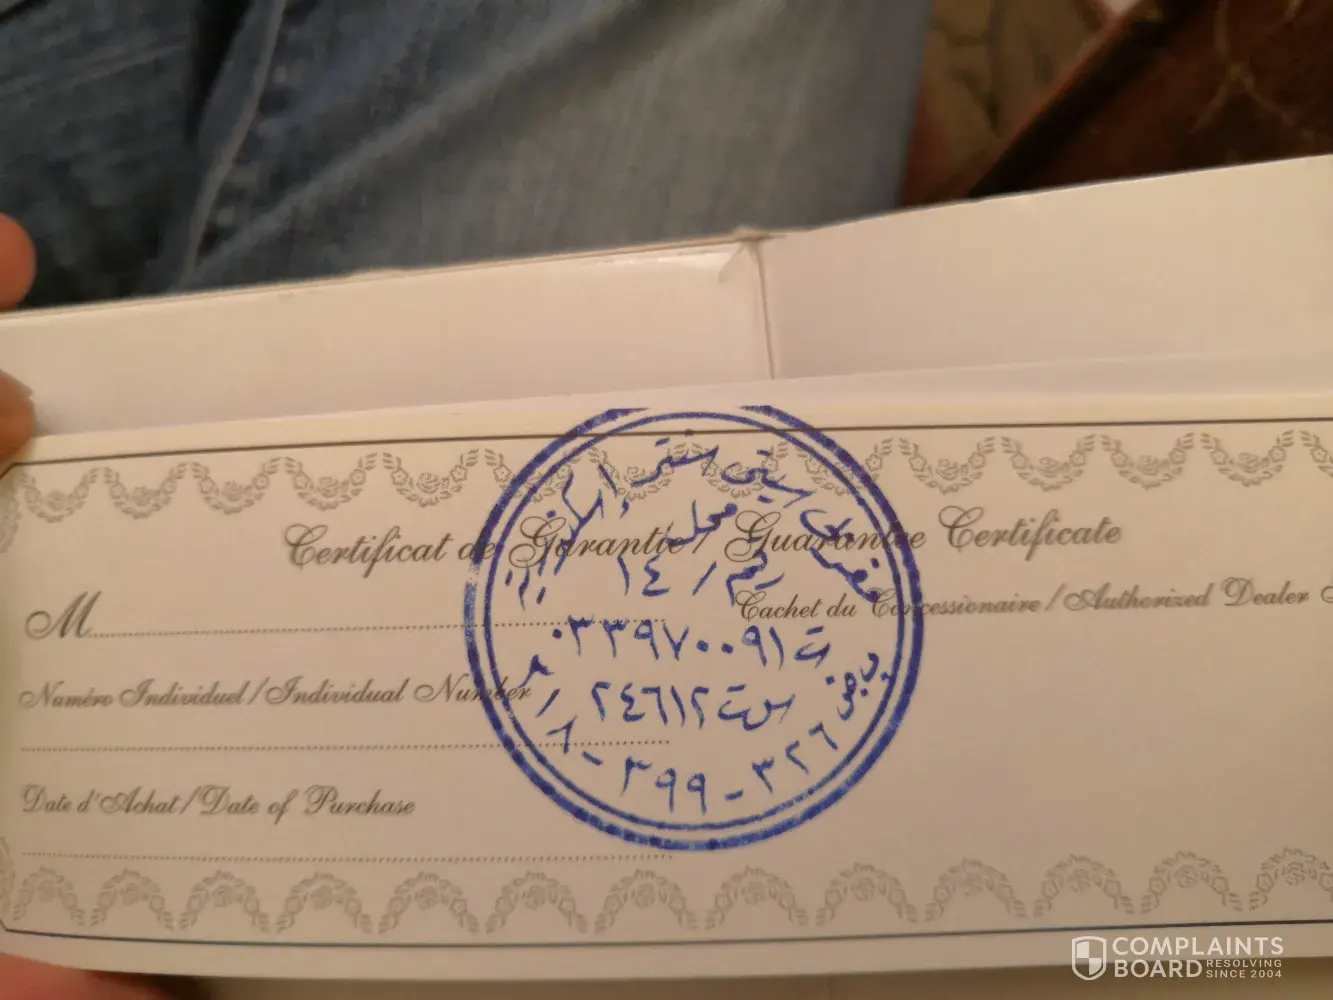 Certificat de Garantie / Guarantee Certificate
M
Cachet du Concessionaire / Authorized Dealer
Numéro Individuel / Individual Number
Date d'Achat / Date of Purchase
سيتى سنتر
رقم / ١٤
ت ٠٣٣٩٧٠٠٩١
س ت ٢٤٦١٢
ب ض ٣٢٦ - ٣٩٩ -
COMPLAINTS
BOARD RESOLVING
SINCE 2004